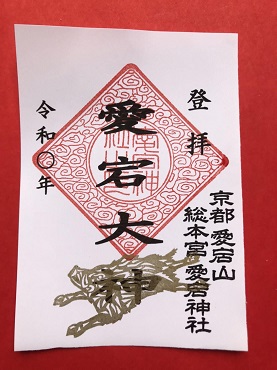 登拝
京都 愛宕山
総本宮 愛宕神社
愛宕大神
令和〇年